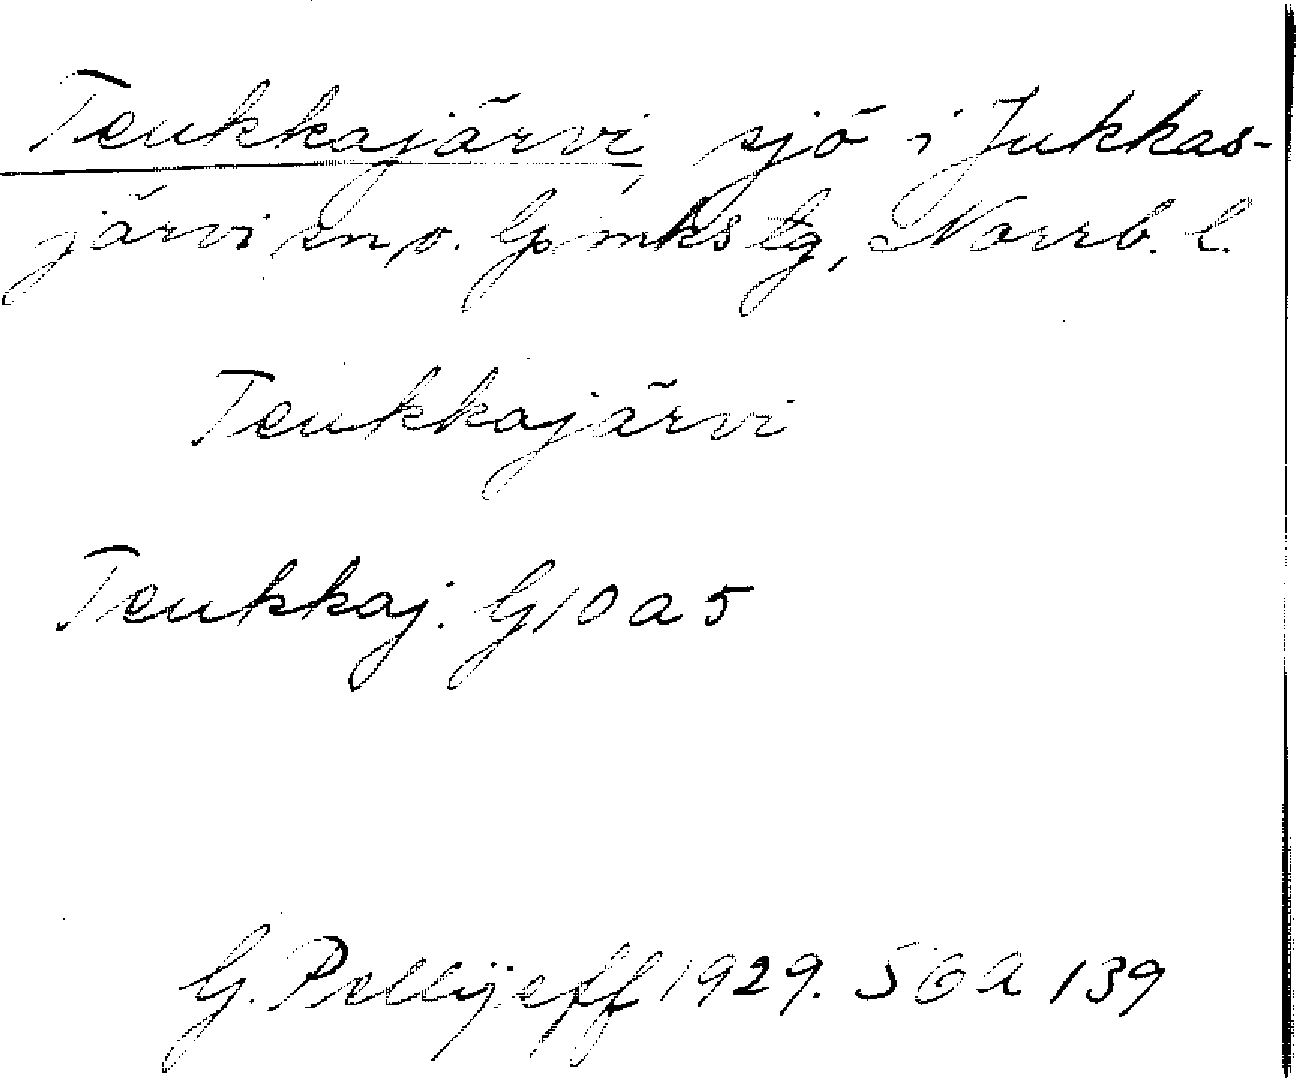 Teukkajärvi, sjö i Jukkas-
järvi snp. Gpmks tg, Norrb. l.
Teukkajärvi
Teukkaj. G10a5
G. Pellijeff 1929. SGA 139